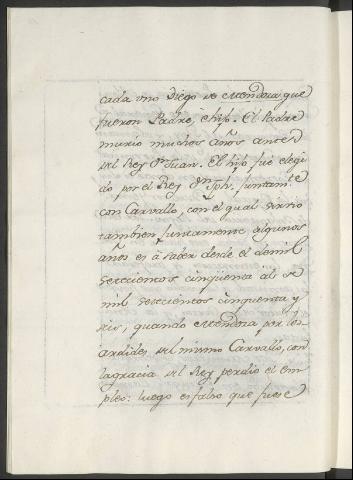 cada uno Diego de Mendoza que
fueron Padre, è hijo. El Padre
murio muchos años antes
del Rey Dn Juan. El hijo fue elegi
do por el Rey Dn Jph. juntamte
con Carvallo, con el qual sirvio
tambien juntamente algunos
años es à saber desde el de mil
setecientos cinquenta al de
mil setecientos cinquenta y
seis; quando Mendoza por los
ardides del mismo Carvallo, con
la gracia del Rey perdio el em
pleo: luego es falso que fuese